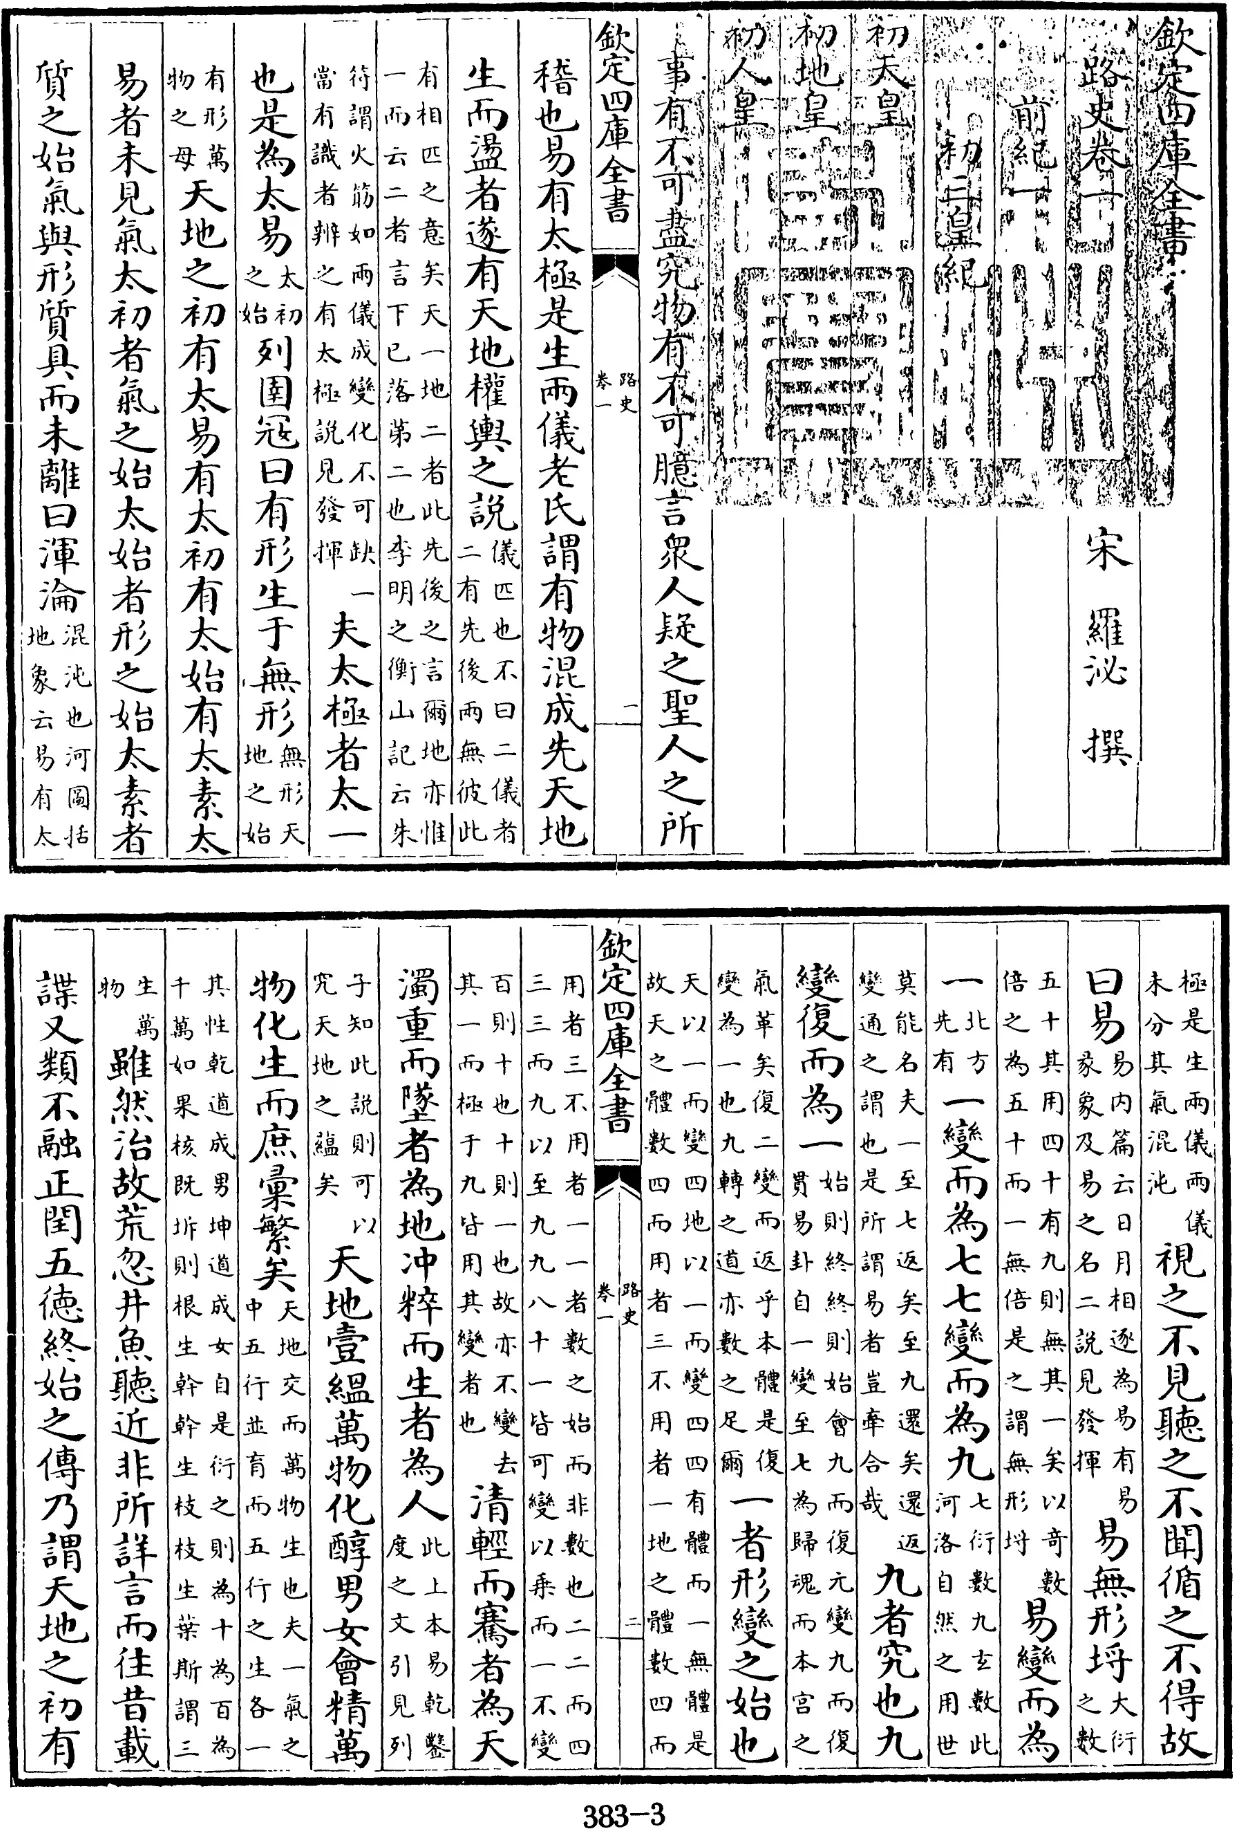 欽定四庫全書
路史卷一 宋 羅泌 撰
前紀一
初三皇紀
初天皇
初地皇
初人皇
事有不可盡究物有不可臆言衆人疑之聖人之所
欽定四庫全書 路史 卷一 一
稽也易有太極是生兩儀老氏謂有物混成先天地
生而盪者遂有天地權輿之說儀匹也不曰二儀者二有先後兩無彼此
有相匹之意矣天一地二者此先後之言爾地亦惟一而云二者言下已落第二也李明之衡山記云朱
符謂火筯如兩儀成變化不可缺一當有識者辨之有太極說見發揮夫太極者太一
也是為太易太初之始列圄寇曰有形生于無形無形天地之始
有形萬物之母天地之初有太易有太初有太始有太素太
易者未見氣太初者氣之始太始者形之始太素者
質之始氣與形質具而未離曰渾淪混沌也河圖括地象云易有太
極是生兩儀兩儀未分其氣混沌視之不見聽之不聞循之不得故
曰易易内篇云日月相逐為易有易彖象及易之名二說見發揮易無形埒大衍之數
五十其用四十有九則無其一矣以奇數倍之為五十而一無倍是之謂無形埒易變而為
一北方先有一變而為七七變而為九七衍數九玄數此河洛自然之用世
莫能名夫一至七返矣至九還矣還返變通之謂也是所謂易者豈牽合哉九者究也九
變復而為一始則終終則始會九而復元變九而復貫易卦自一變至七為歸魂而本宫之
氣革矣復二變而返乎本體是復變為一也九轉之道亦數之足爾一者形變之始也
天以一而變四地以一而變四四有體而一無體是故天之體數四而用者三不用者一地之體數四而
欽定四庫全書 路史 卷一 二
用者三不用者一一者數之始而非數也二二而四三三而九以至九九八十一皆可變以乘而一不變
百則十也十則一也故亦不變去其一而極于九皆用其變者也清輕而騫者為天
濁重而墜者為地冲粹而生者為人此上本易乾鑿度之文引見列
子知此說則可以究天地之蘊矣天地壹縕萬物化醇男女會精萬
物化生而庶彙繁矣天地交而萬物生也夫一氣之中五行並育而五行之生各一
其性乾道成男坤道成女自是衍之則為十為百為千萬如果核既坼則根生幹幹生枝枝生葉斯謂三
生萬物雖然治故荒忽井魚聽近非所詳言而往昔載
諜又類不融正閏五德終始之傳乃謂天地之初有
383-3